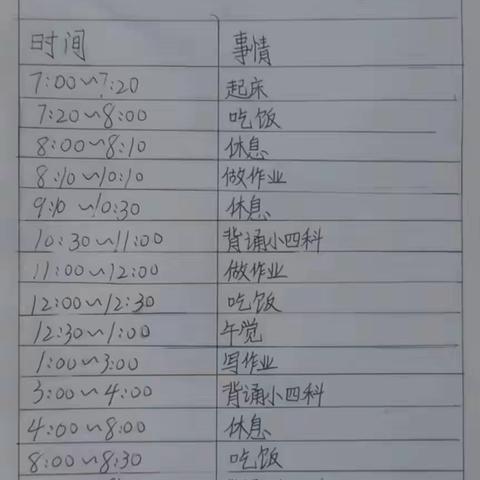 时间 事情
7:00~7:20 起床
7:20~8:00 吃饭
8:00~8:10 休息
8:10~10:10 做作业
9:10~10:30 休息
10:30~11:00 背诵小四科
11:00~12:00 做作业
12:00~12:30 吃饭
12:30~1:00 午觉
1:00~3:00 写作业
3:00~4:00 背诵小四科
4:00~8:00 休息
8:00~8:30 吃饭